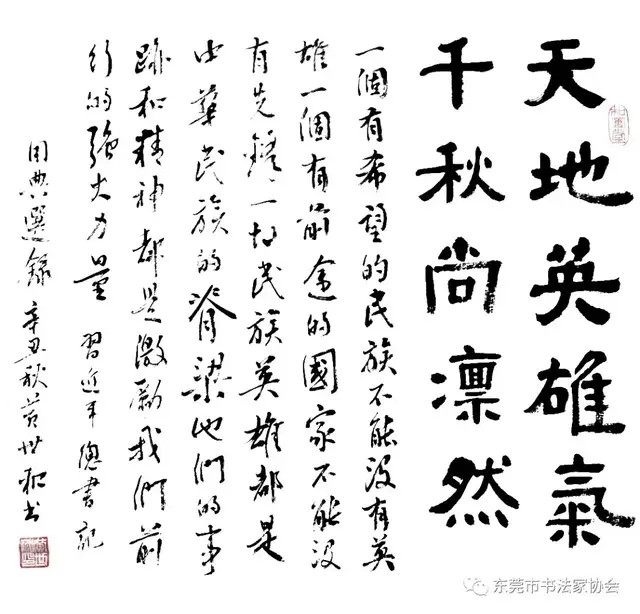 天地英雄氣
千秋尚凛然
一個有希望的民族不能没有英
雄一個有前途的國家不能没
有先鋒一切民族英雄都是
中華民族的脊梁他們的事
跡和精神都是激勵我們前
行的强大力量 習近平總書記
用典選録 辛丑秋 世和书
东莞市书法家协会